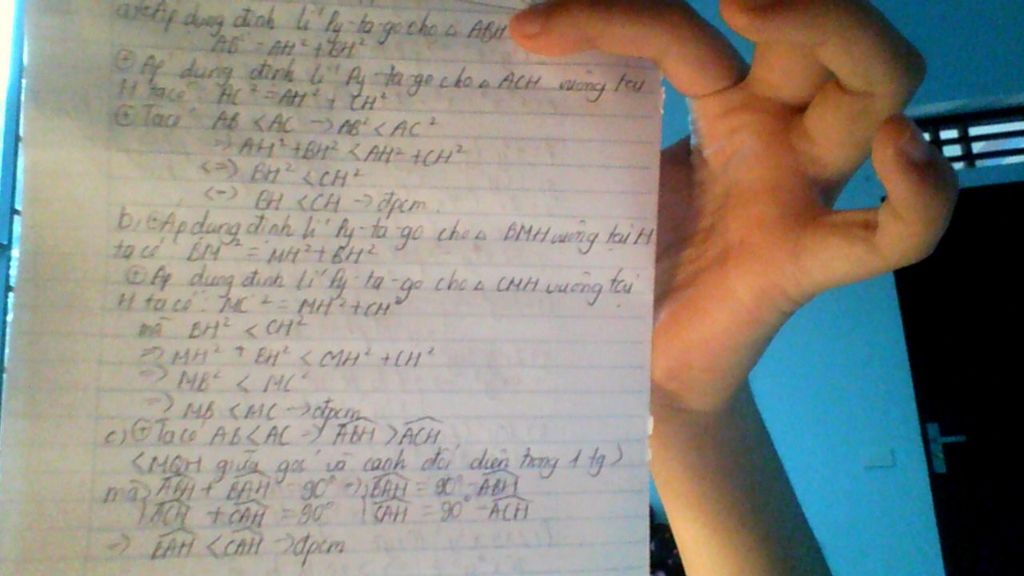 a, ⊕ Áp dụng định lí Py-ta-go cho △ ABH
AB² = AH² + BH²
⊕ Áp dụng định lí Py-ta-go cho △ ACH vuông tại
H ta có: AC² = AH² + CH²
⊕ Ta có AB < AC → AB² < AC²
=> AH² + BH² < AH² + CH²
<=> BH² < CH²
<=> BH < CH → đpcm.
b, ⊕ Áp dụng định lí Py-ta-go cho △ BMH vuông tại H
ta có BM² = MH² + BH²
⊕ Áp dụng định lí Py-ta-go cho △ CMH vuông tại
H ta có: MC² = MH² + CH²
mà BH² < CH²
=> MH² + BH² < MH² + CH²
=> MB² < MC²
=> MB < MC → đpcm
c) ⊕ Ta có AB < AC → ABH > ACH
<MQH giữa góc và cạnh đối diện trong 1 tg>
mà } ABH + BAH = 90° => } BAH = 90° - ABH
} ACH + CAH = 90° } CAH = 90° - ACH
=> BAH < CAH → đpcm